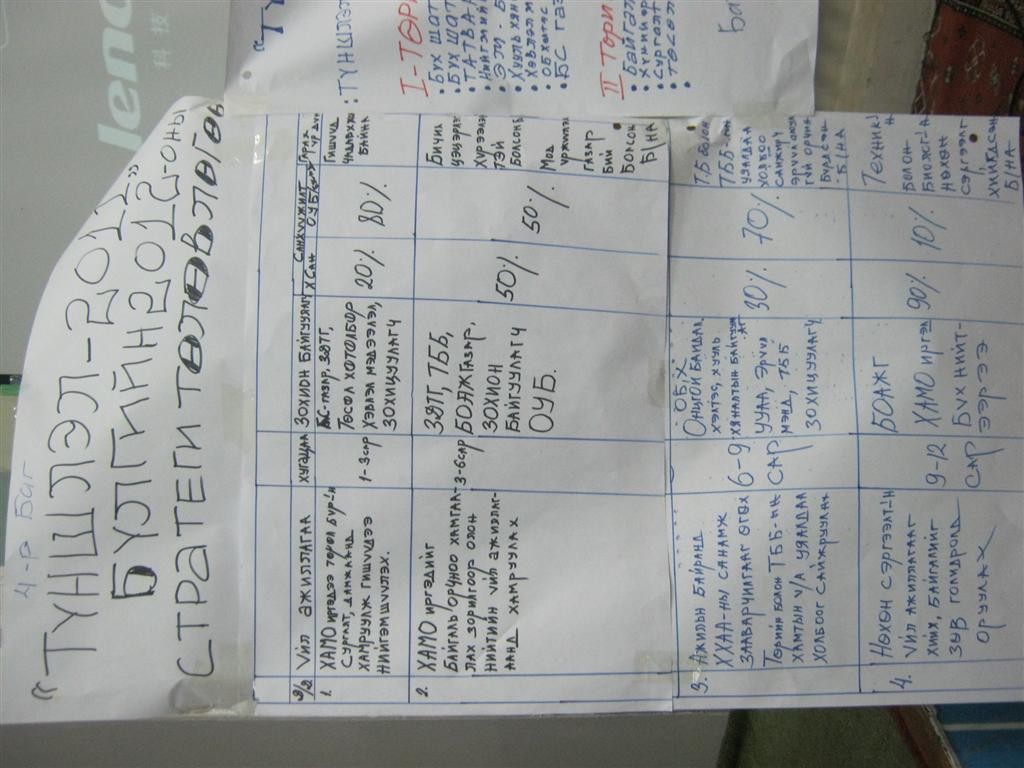 4-р Баг
"ТҮНШЛЭЛ-2012"
БҮЛГИЙН 2012-ОНЫ
СТРАТЕГИ ТӨЛӨВЛӨГӨӨ
д/д
Үйл ажиллагаа
хугацаа
Зохион байгуулагч
Санхүүжилт
Х.Сан
ОУБ
Гарах үр дүн
1.
ХАМО иргэдээ төрөл бүр-н
сургалт, дамжаанд
хамруулж гишүүдээ
нийгэмшүүлэх.
1-3сар
БС-газар, ЗДТГ,
Төсөл хөтөлбөр
Хэвлэл мэдээлэл,
зохицуулагч
20%
80%
Гишүүд
чадавхжсан
байна
2.
ХАМО иргэдийг
Байгаль орчноо хамгаа-
лах зорилгоор олон
нийтийн үйл ажиллаг-
аанд хамруулах
3-6сар
ЗДТГ, ТББ,
БОАЖГазар,
зохион
байгуулагч
ОУБ.
50%
50%
Бичил
цэцэрлэг
Хүрээлэн
тэй
Болсон
Мод
үржүүлгийн
газар
бий
Болсон
Б/НА
3.
Ажлын Байранд
ХХАА-ны санамж
зааварчилгааг өгөх
Төрийн болон ТББ-ын
хамтын ү/а уялдаа
холбоог сайжруулах
6-9
САР
ОБХ
Онцгой Байдал
хэлтэс, хууль
хяналтын байгуул.
ЦУАА, эрүүл
мэнд, ТББ
зохицуулагч
30%
70%
Т.Б болон
ТББ-ын
уялдаа
холбоо
сайжирч
эрүүл аюул
гүй орчин
Бүрдсэн
Б/НА
4.
Нөхөн сэргээлт-н
үйл ажиллагааг
хийх, Байгалийг
зөв голдролд
оруулах
9-12
САР
БОАЖГ
ХАМО иргэд
Бүх нийт-
ээрээ
90%
10%
Техник
Болон
Биологи-н
нөхөн
сэргээлт
хийгдсэн
Б/НА
"ТҮ
:ТҮНШЛЭЛ
I-ТӨРИ
• Бүх шат
• Бүх шат
• ТАТВАР
• Нийгмийн
• ЭМ-Б
• Хууль хян
• Хэвлэл м
• ОБХөгжс
• БС газ
II Төри
• Байгал
• Хүнийнөр
• Сургалт
• төсөл
Ба
lenovo
科技